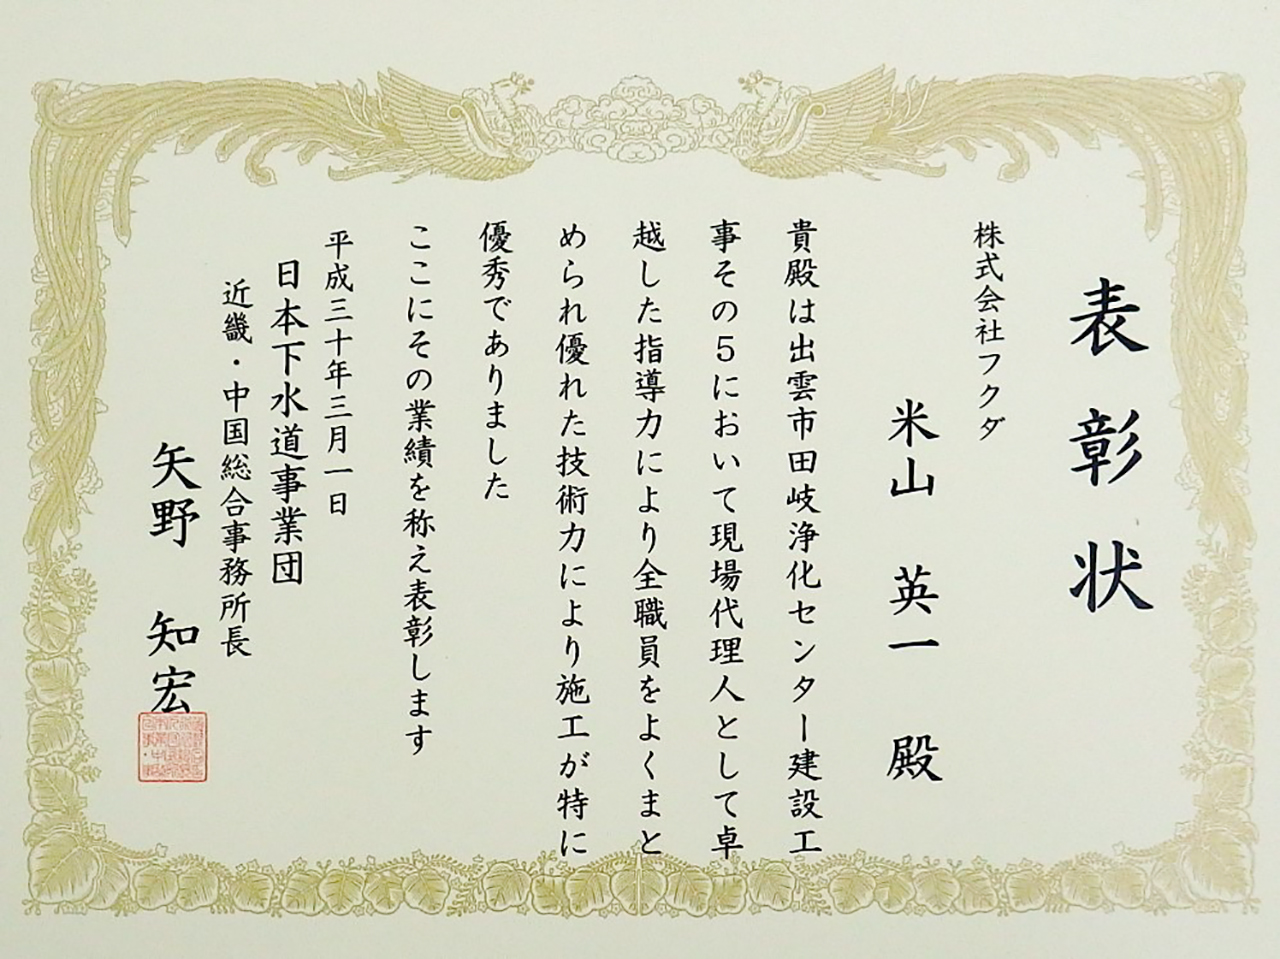 表彰状
株式会社フクダ
米山 英一 殿
貴殿は出雲市田岐浄化センター建設工
事その5において現場代理人として卓
越した指導力により全職員をよくまと
められ優れた技術力により施工が特に
優秀でありました
ここにその業績を称え表彰します
平成三十年三月一日
日本下水道事業団
近畿・中国総合事務所長
矢野 知宏